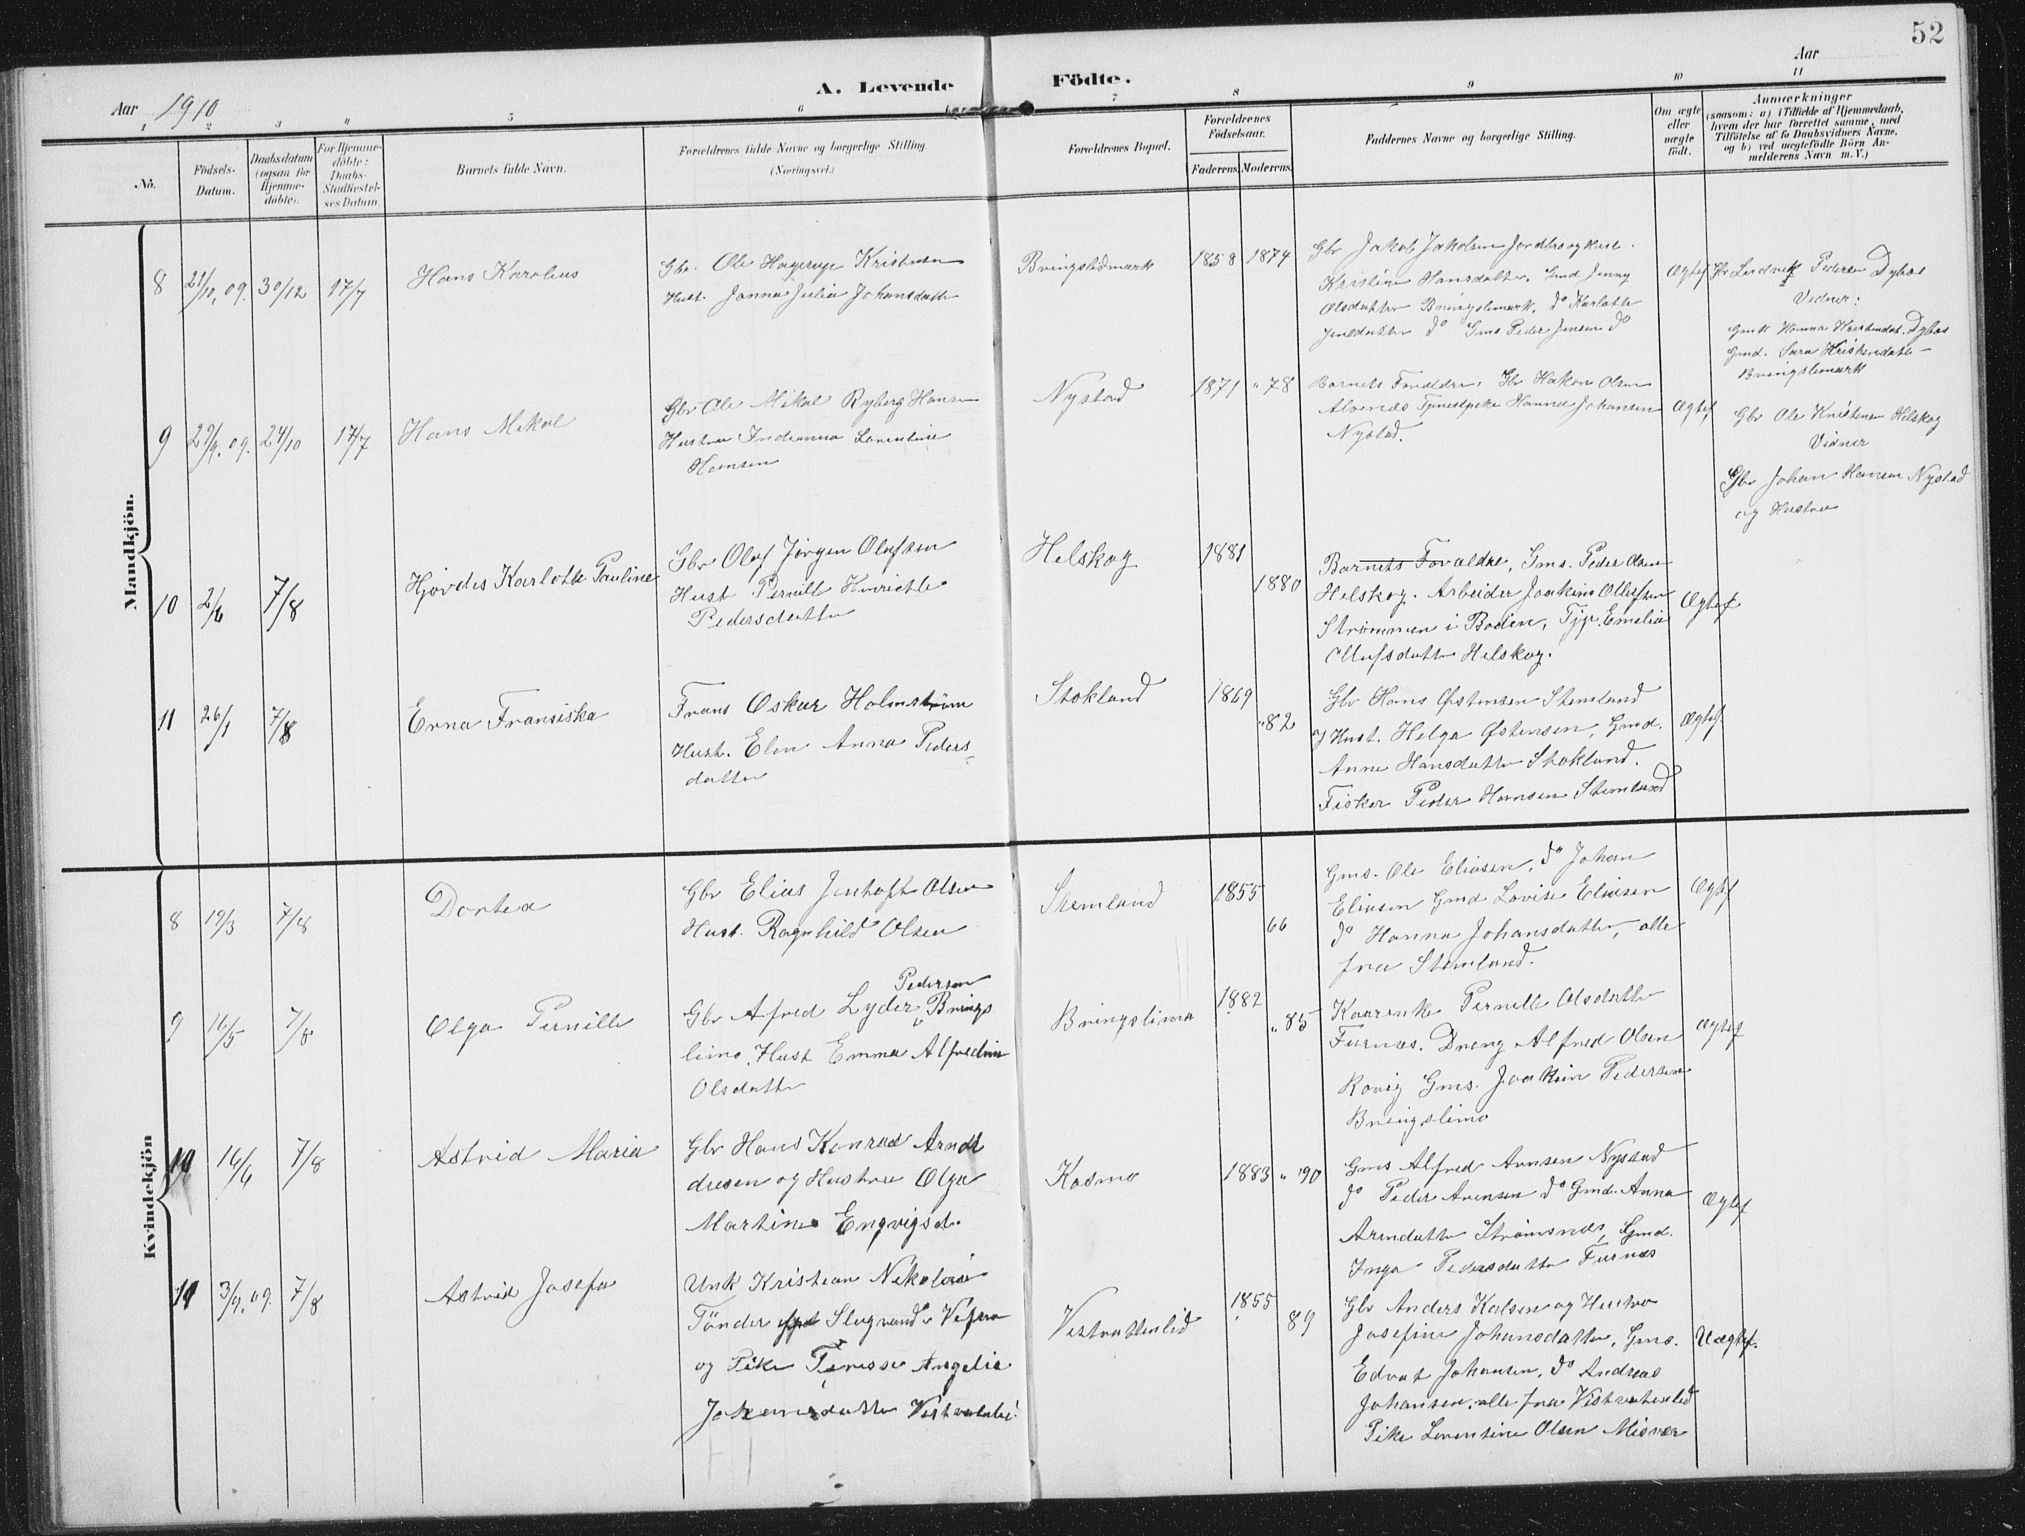 52
Aar 1910
A. Levende Födte.
Aar
1 2 3 4 5 6 7 8 9 10 11
No.
Födsels-
Datum.
Daabsdatum
(ogsaa for
Hjemme-
döbte).
For Hjemme-
döbte:
Daabs-
Stadfæstel-
ses Datum
Barnets fulde Navn.
Forældrenes fulde Navne og borgerlige Stilling.
(Næringsvei.)
Forældrenes Bopæl.
Forældrenes
Födselsaar.
Faderens. Moderens.
Faddernes Navne og borgerlige Stilling.
Om ægte
eller
uægte
födt.
Anmærkninger
(saasom: a) i Tilfælde af Hjemmedaab,
hvem der har forrettet samme, med
Tilföielse af to Daabsvidners Navne.
og b) ved uægtefödte Börn An-
melderens Navn m. V.)
Mandkjön.
8 21/10, 09. 30/12 17/7
Hans Karolius
Gbr. Ole Hagerup Kristensen
Hust. Janna Julia Johansdatter
Bringslidmark
1858 1874
Gbr Jakob Jakobsen Jordbro og Hust.
Kristine Hansdatter. Gmd Jenny
Olsdatter Bringslimark. do Karlotte
Jensdatter do Gms Peder Jensen do
Ægtef
Hr Ludvik Pedersen Dybos
Vidner:
Gmd Hanna Kristensdat. Dybos
Gmd. Sara Kristensdatter
Bringslimark
9 29/9. 09. 24/10 17/7
Hans Mikal
Gbr Ole Mikal Ryberg Hansen
Hustru Indianna Lorentine
Hansen
Nystad
1871 " 78
Barnets Forældre, Gbr Hakon Olsen
Alvenes Tjenestpike Hanna Johansen
Nystad.
Ægtef
Gbr Ole Kristensen Helskog
Vidner
Gbr Johan Hansen Nystad
og Hustru
10 2/6 7/8
Hjørdis Karlotte Pauline
Gbr Olaf Jørgen Olufsen
Hust Pernille Henriette
Pedersdatter
Helskog
1881
1880
Barnets Forældre, Gms. Peder Olsen
Helskog. Arbeider Joakim Ollufsen
Strømmen i Bodin, Tjp. Emelia
Ollufsdatter Helskog.
Ægtef
11 26/1 7/8
Erna Fransiska
Frans Oskar Holmstrøm
Hust. Elen Anna Peders
datter
Stokland
1869
" 82
Gbr Hans Østensen Stemland
og Hust. Helga Østensen, Gmd.
Anne Hansdatter Stokland.
Fisker Peder Hansen Stemland
Ægtef
Kvindekjön
8 19/3 7/8
Dortea
Gbr Elias Jentoft Olsen
Hust. Ragnhild Olsen
Stemland
1855
66
Gms. Ole Eliasen, do Johan
Eliasen Gmd Lovise Eliasen
do Hanna Johansdatter, alle
fra Stemland.
Ægtef
9 16/5 7/8
Olga Pernille
Pedersen
Gbr Alfred Lyder Brings
limo. Hust Emma Alfredine
Olsdatter
Bringslimo
1882
" 85
Kaarenke Pernille Olsdatter
Furnes. Dreng Alfred Olsen
Rovig Gms. Joakim Pedersen
Bringslimo
Ægtef
10 16/6 7/8
Astrid Maria
Gbr Hans Konrad Arndt
dresen og Hustru Olga
Martine Engvigsd.
Kosmo
1883 " 90
Gms Alfred Arnsen Nystad
do Peder Arensen do Gmd. Anna
Arendatter Strømsnes, Gmd.
Inga Pedersdatter Furnes
Ægtef
11 3/9. 09. 7/8
Astrid Josefa
Unk Kristian Nikolai
Tönder Slegrand Vefsn
og Pike Teresse Angelie
Johansdatter Vestvatnli
Vestvattenlid
1855
89
Gbr Anders Kalsen og Hustru
Josefine Johansdatter, Gms.
Edvat Johansen, do Andreas
Johansen, alle fra Vestvatenlid
Pike Lorentine Olsen Misvær
Uægtef.